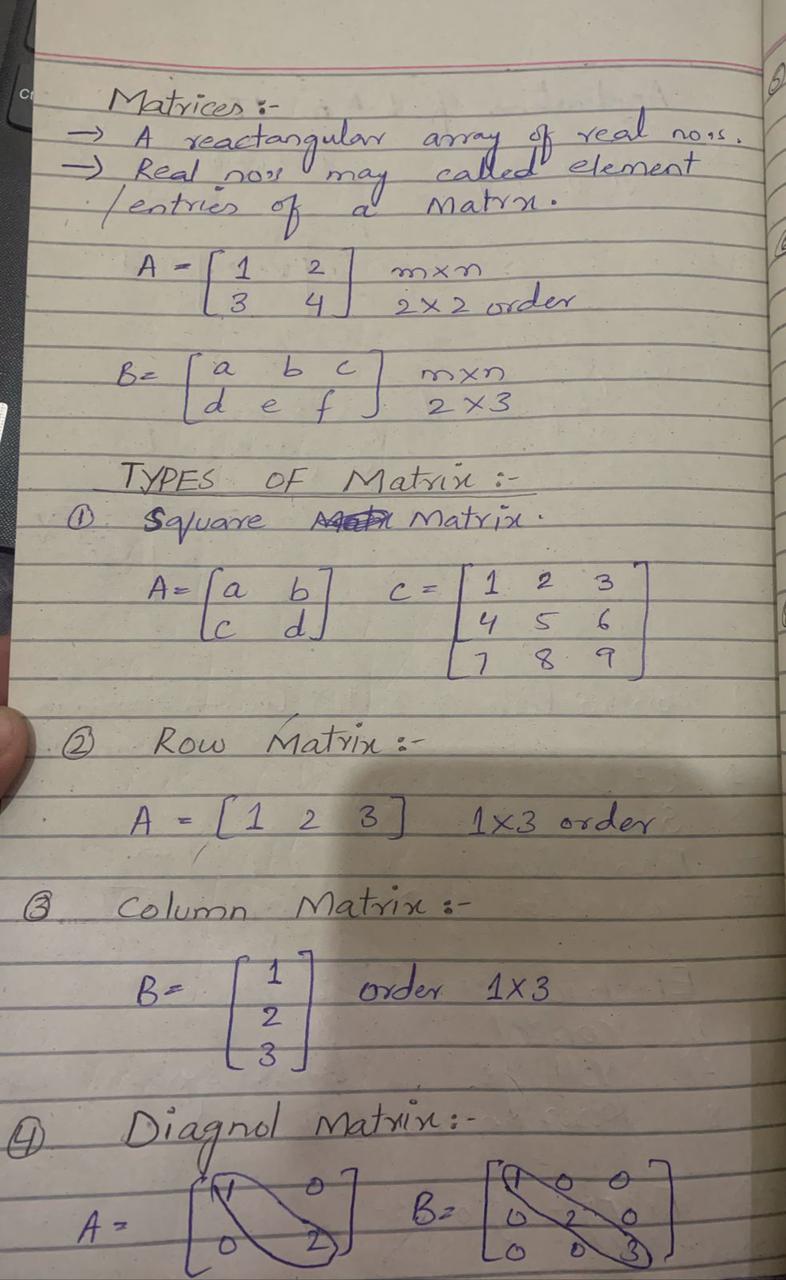 Matrices :-
→ A reactangular array of real nos.
→ Real nos may called element
/entries of a Matrx.
A = [ 1 2 m×n
3 4 ] 2×2 order
B= [ a b c m×n
d e f ] 2×3
TYPES OF Matrix :-
① Square Matrix.
A= [ a b C = [ 1 2 3
c d ] 4 5 6
7 8 9 ]
② Row Matrix :-
A = [ 1 2 3 ] 1×3 order
③ Column Matrix :-
B= [ 1 order 1×3
2
3 ]
④ Diagnol Matrix :-
A = [ 1 0 B= [ 1 0 0
0 2 ] 0 2 0
0 0 3 ]